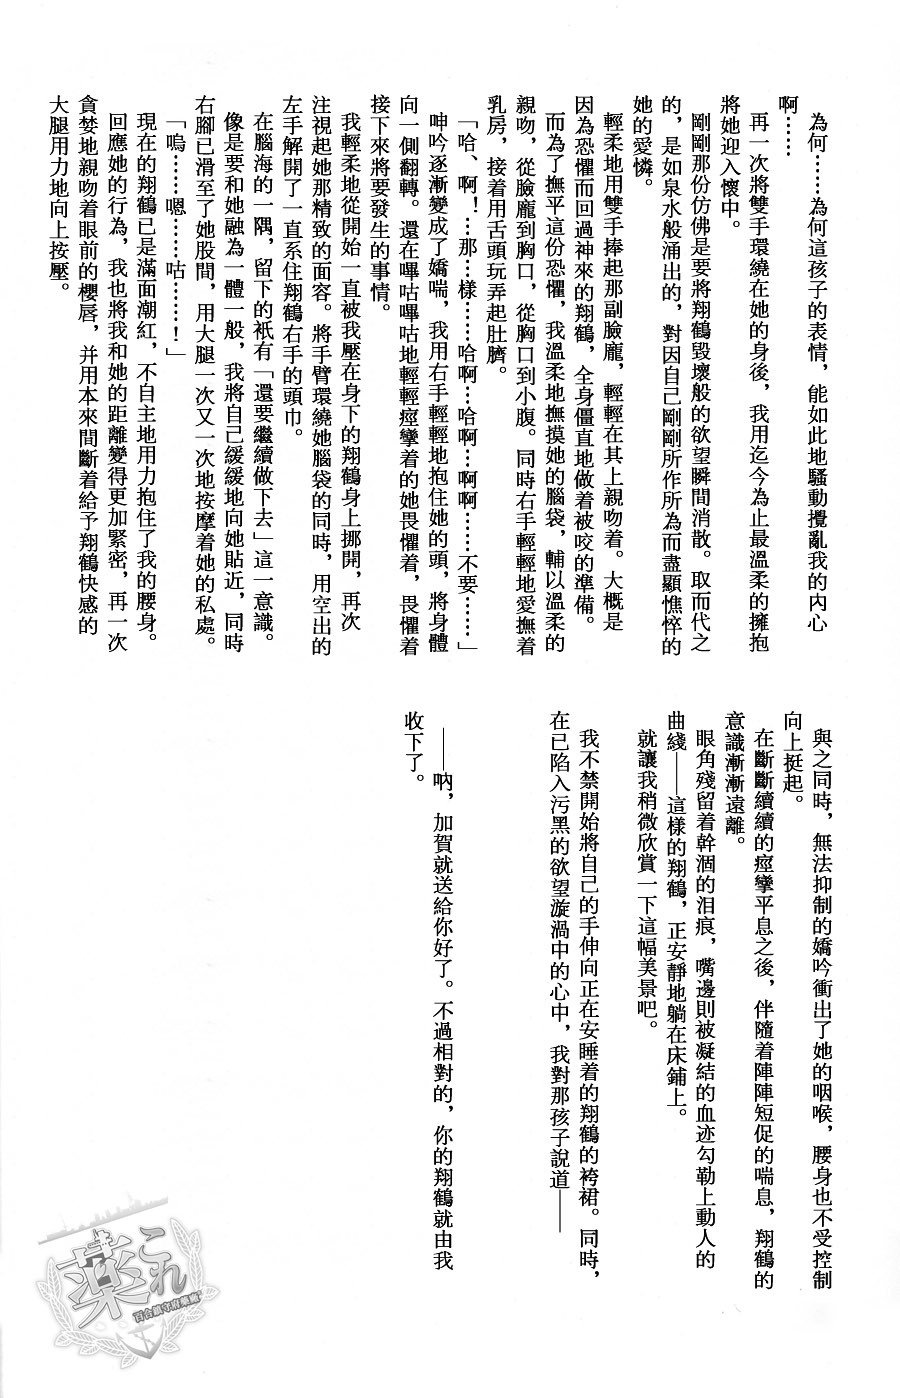 為何……為何這孩子的表情，能如此地騷動攪亂我的內心
啊……
再一次將雙手環繞在她的身後，我用迄今為止最溫柔的擁抱
將她迎入懷中。
剛剛那份仿佛是要將翔鶴毀壞般的欲望瞬間消散。取而代之
的，是如泉水般涌出的，對因自己剛剛所作所為而盡顯憔悴的
她的愛憐。
輕柔地用雙手捧起那副臉龐，輕輕在其上親吻着。大概是
因為恐懼而回過神來的翔鶴，全身僵直地做着被咬的準備。
而為了撫平這份恐懼，我溫柔地撫摸她的腦袋，輔以溫柔的
親吻，從臉龐到胸口，從胸口到小腹。同時右手輕輕地愛撫着
乳房，接着用舌頭玩弄起肚臍。
「哈、啊！…那…樣……哈啊…哈啊…啊啊……不要……」
呻吟逐漸變成了嬌喘，我用右手輕輕地抱住她的頭，將身體
向一側翻轉。還在嗶咕嗶咕地輕輕痙攣着的她畏懼着，畏懼着
接下來將要發生的事情。
我輕柔地從開始一直被我壓在身下的翔鶴身上挪開，再次
注視起她那精致的面容。將手臂環繞她腦袋的同時，用空出的
左手解開了一直系住翔鶴右手的頭巾。
在腦海的一隅，留下的衹有「還要繼續做下去」這一意識。
像是要和她融為一體一般，我將自己緩緩地向她貼近，同時
右腳已滑至了她股間，用大腿一次又一次地按摩着她的私處。
「嗚……嗯……咕……！」
現在的翔鶴已是滿面潮紅，不自主地用力抱住了我的腰身。
回應她的行為，我也將我和她的距離變得更加緊密，再一次
貪婪地親吻着眼前的櫻唇，并用本來間斷着給予翔鶴快感的
大腿用力地向上按壓。
與之同時，無法抑制的嬌吟衝出了她的咽喉，腰身也不受控制
向上挺起。
在斷斷續續的痙攣平息之後，伴隨着陣陣短促的喘息，翔鶴的
意識漸漸遠離。
眼角殘留着幹涸的泪痕，嘴邊則被凝結的血迹勾勒上動人的
曲綫——這樣的翔鶴，正安靜地躺在床鋪上。
就讓我稍微欣賞一下這幅美景吧。
我不禁開始將自己的手伸向正在安睡着的翔鶴的袴裙。同時，
在已陷入污黑的欲望漩渦中的心中，我對那孩子說道——
——吶，加賀就送給你好了。不過相對的，你的翔鶴就由我
收下了。
藥
これ